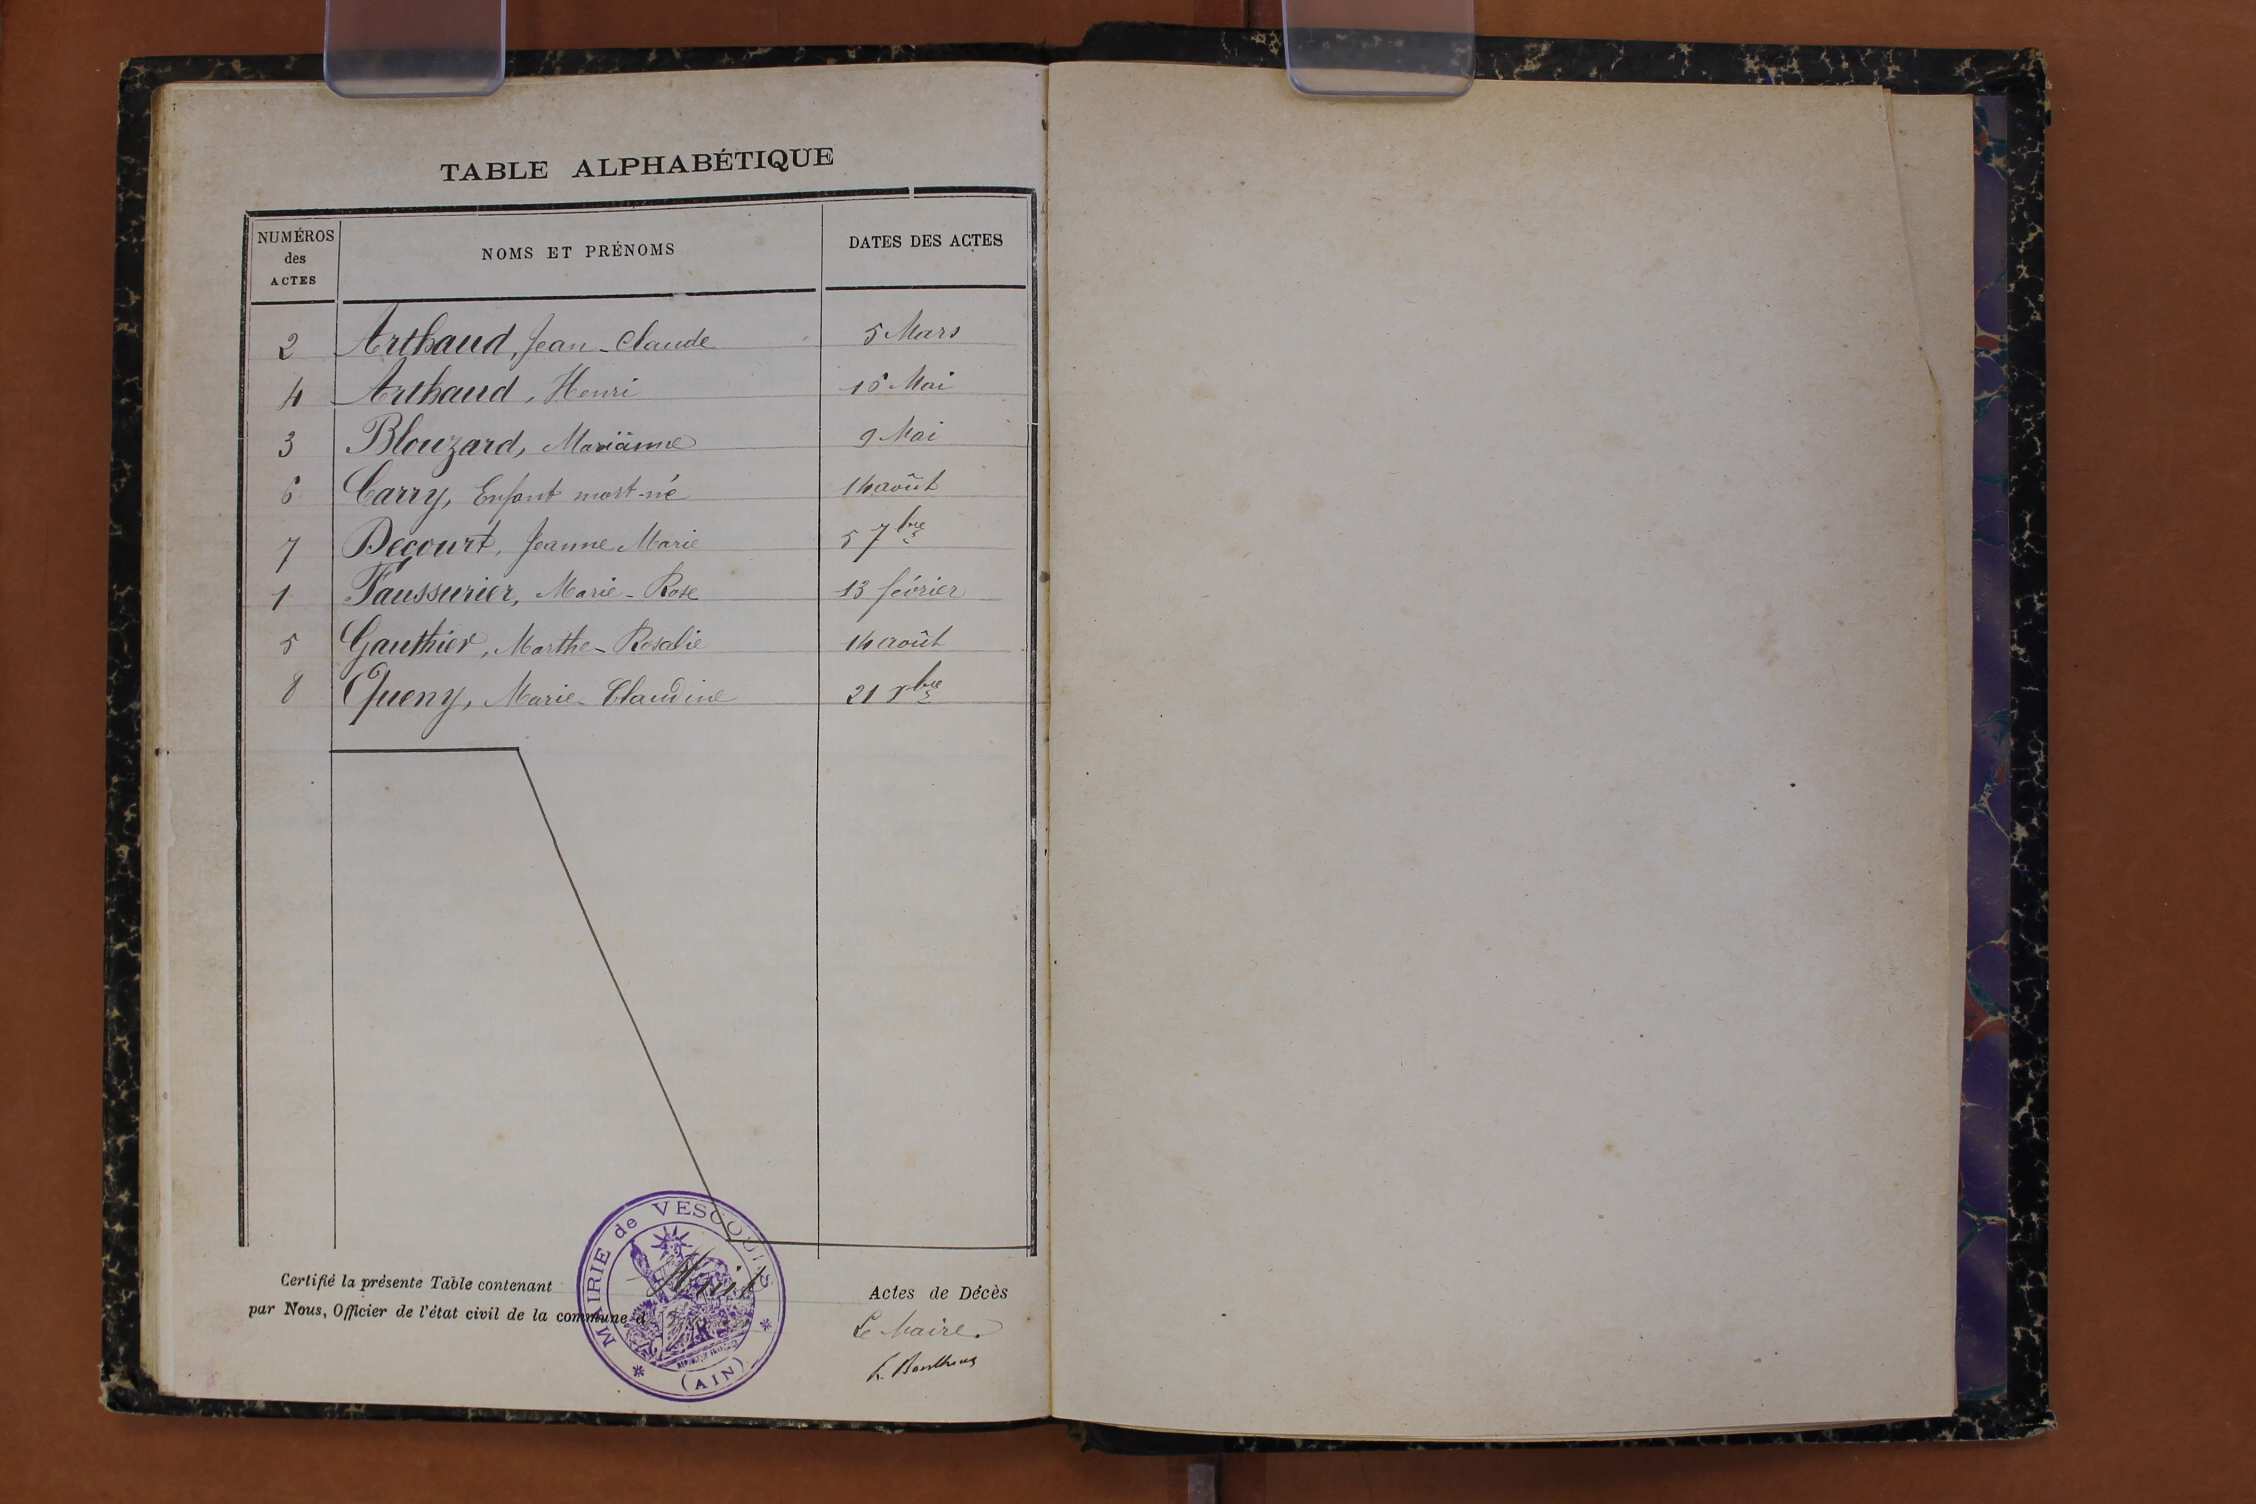 TABLE ALPHABÉTIQUE
NUMÉROS
des
ACTES
NOMS ET PRÉNOMS
DATES DES ACTES
2 Arthaud, Jean-Claude 5 Mars
4 Arthaud, Henri 15 Mai
3 Blouzard, Marianne 9 Mai
6 Carry, Enfant mort-né 14 août
7 Deçourt, Jeanne Marie 5 7bre
1 Faussurier, Marie-Rose 13 février
5 Gauthier, Marthe-Rosalie 14 août
8 Queny, Marie-Claudine 21 8bre
Certifié la présente Table contenant Huit Actes de Décès
par Nous, Officier de l'état civil de la commune d
Le Maire.
MAIRIE de VESCOURS
(AIN)